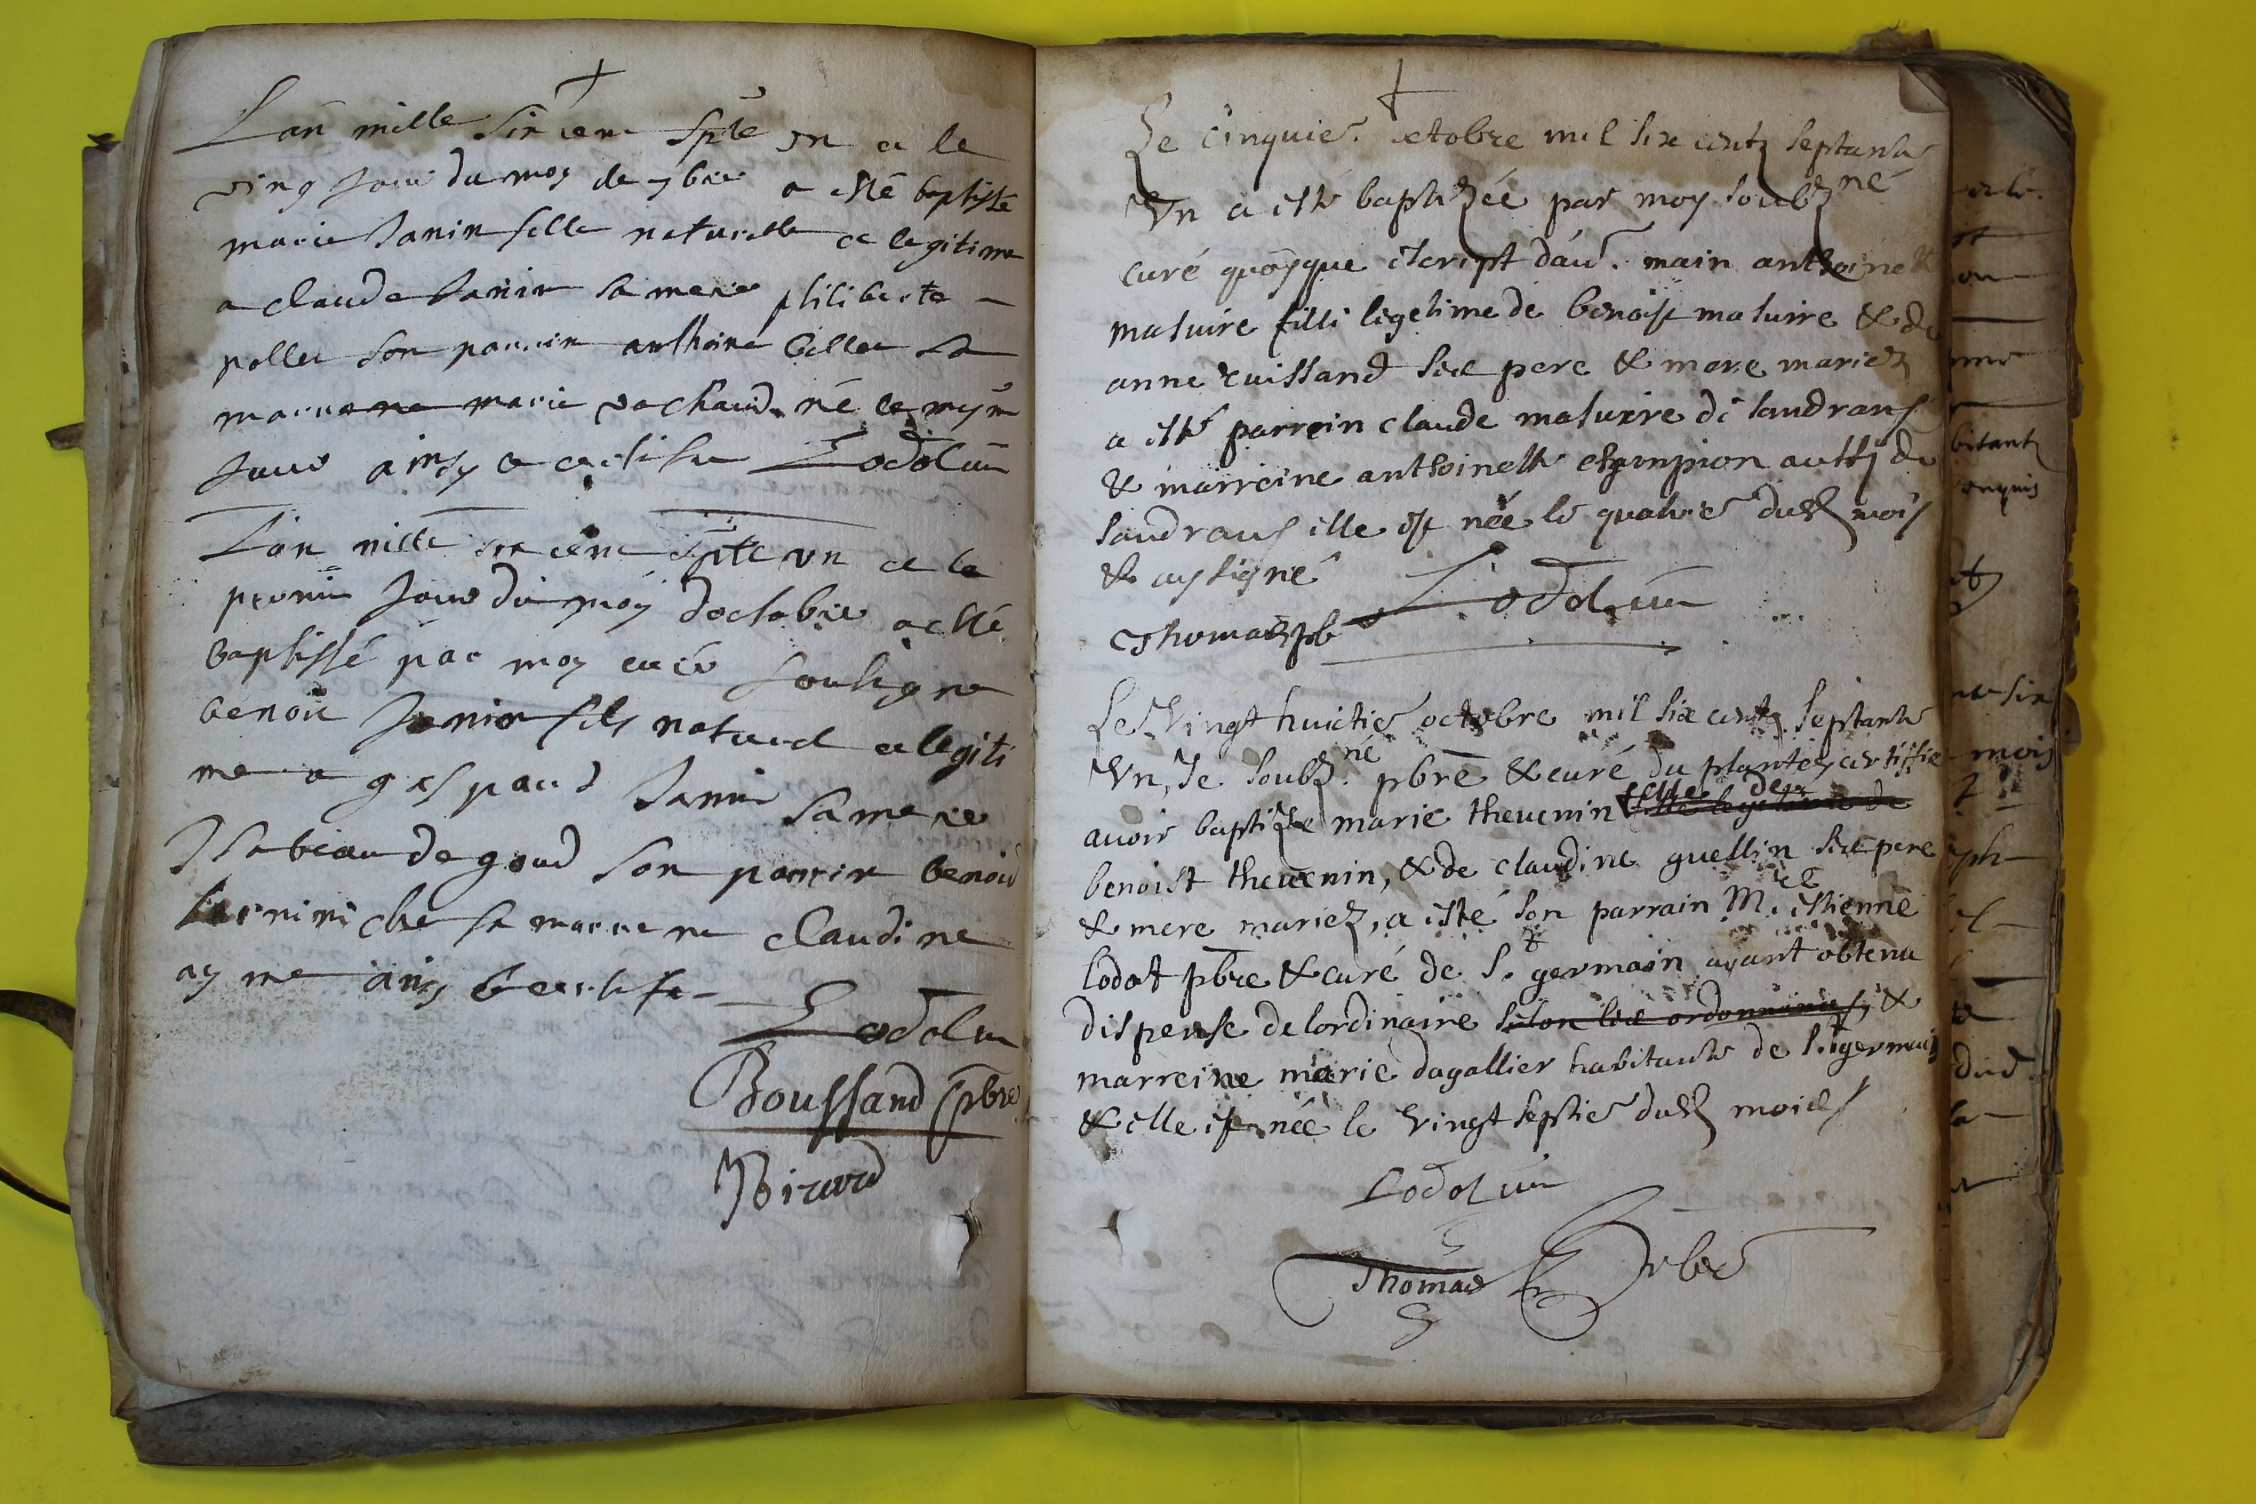 Lan mille six cent spte vn a le
ving jour du moy de 7bre a esté baptisté
marie Janin fille naturelle et legitime
a claude Janin sa mere philiberte
pollet son parrin anthoine billet sa
marrene marie vachaud né le mesme
jour ainsy e certifie Lodot cure
Lan mille six cent spte vn et le
premie jour du moy doctobre a esté
baptissé par moy curé sousigne
benoit Janin fils naturel et legiti
me a gaspard Janin sa mere
Isabeau degoud son parrin benoid
che sa marrene claudine
ayme ainsy certifie
Lodot cure
Boussand pbre
Birard
Le cinquie. octobre mil six centz septante
Vn a esté baptizée par moy soubz né
curé quoyque escript dau. main anthoinette
matuire fille legetime de benoist matuire & de
anne ruissand ses pere & mere mariez
a esté parrein claude matuire de sandrans
& marreine anthoinette champion aussi de
sandrans elle est née le quatrie dud mois
& ay signé
Lodot cure
Thomas pb
Le Vingt huictie octobre mil six centz septante
Vn, Je soubz né pbre & curé du plantey certiffie
avoir baptizée marie thevenin fille de
benoist thevenin, & de claudine guellin ses pere
& mere mariez, a esté son parrain Mre estienne
lodot pbre & curé de St germain ayant obtenu
dispense de lordinaire selon les ordonnances, &
marreine marie dagallier habitante de St germain
& elle est née le Vingt septie dud mois
Lodot cure
Thomas pbre